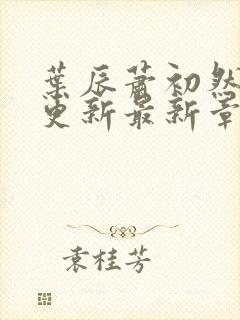 葉辰蕭初然
更新最新章
袁桂芳